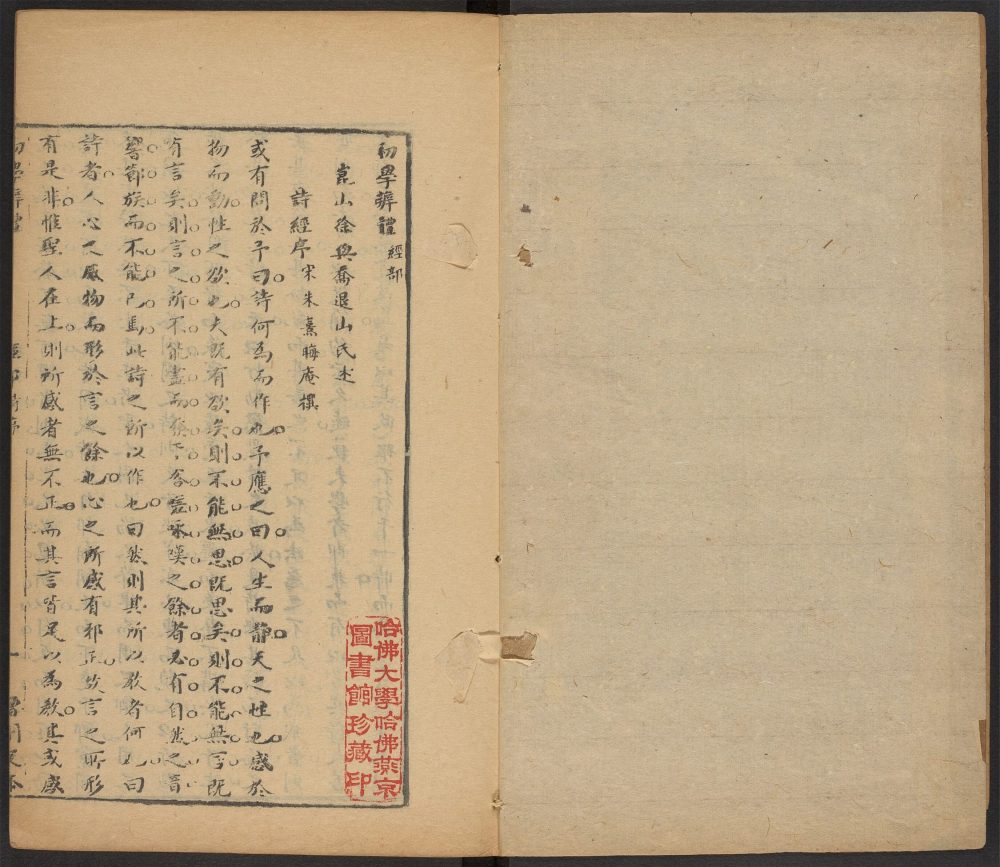 初學辨體 經部
崑山徐與喬退山氏述
詩經序 宋朱熹晦庵撰
或有問於予曰詩何為而作也予應之曰人生而靜天之性也感於
物而動性之欲也夫既有欲矣則不能無思既思矣則不能無言既
有言矣則言之所不能盡而發於咨嗟咏嘆之餘者必有自然之音
響節族而不能已焉此詩之所以作也曰然則其所以教者何也曰
詩者人心之感物而形於言之餘也心之所感有邪正故言之所形
有是非惟聖人在上則所感者無不正而其言皆足以為教其或感
初學辨體
哈佛大學哈佛燕京
圖書館珍藏印